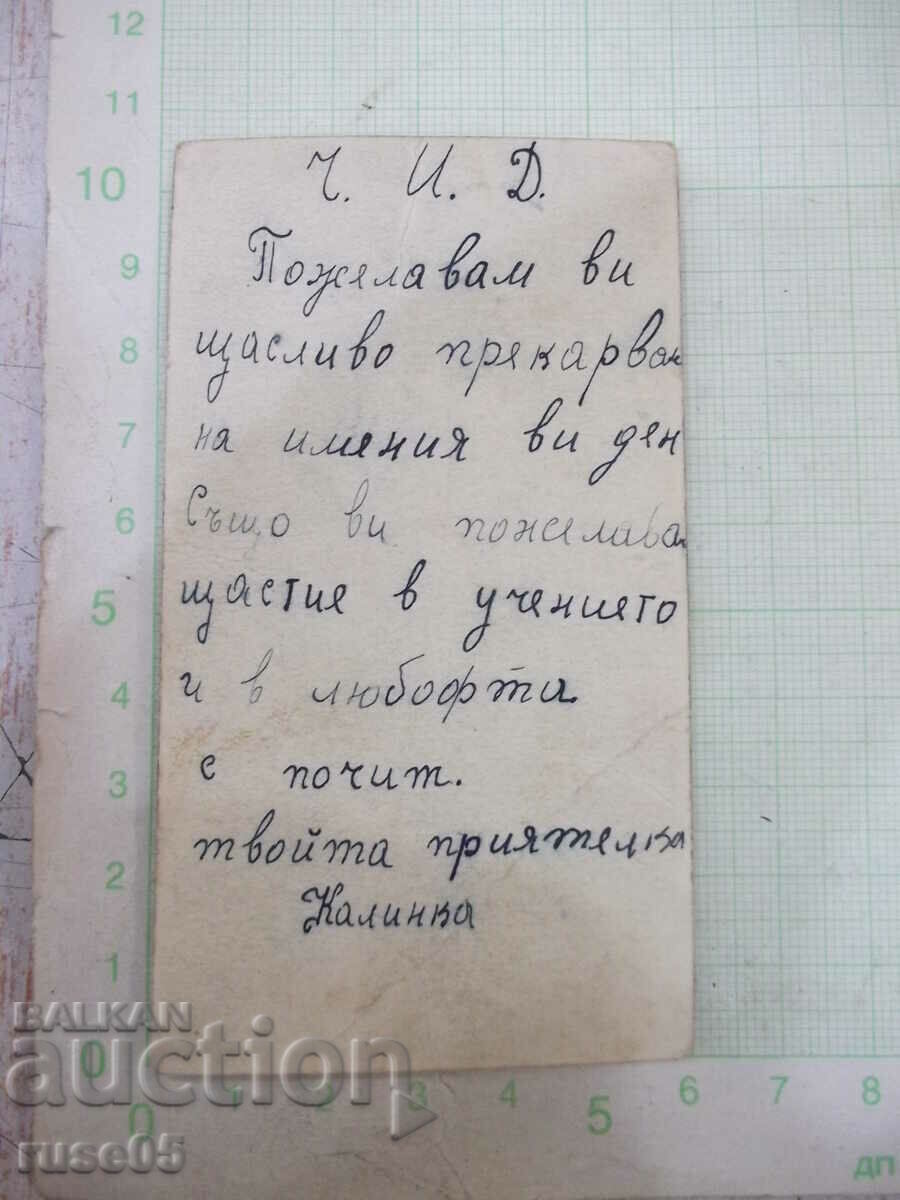 12
11
10
9
8
7
6
5
4
3
2
1
0
Ч. И. Д.
Пожелавам ви
щасливо прекарван
на имения ви ден
Също ви пожелава
щастие в учението
и в любофта
с почит.
твойта приятелка
Калинка
BALKAN
auction
ruse05
0 1 2 3 4 5 6 7 8
ДП